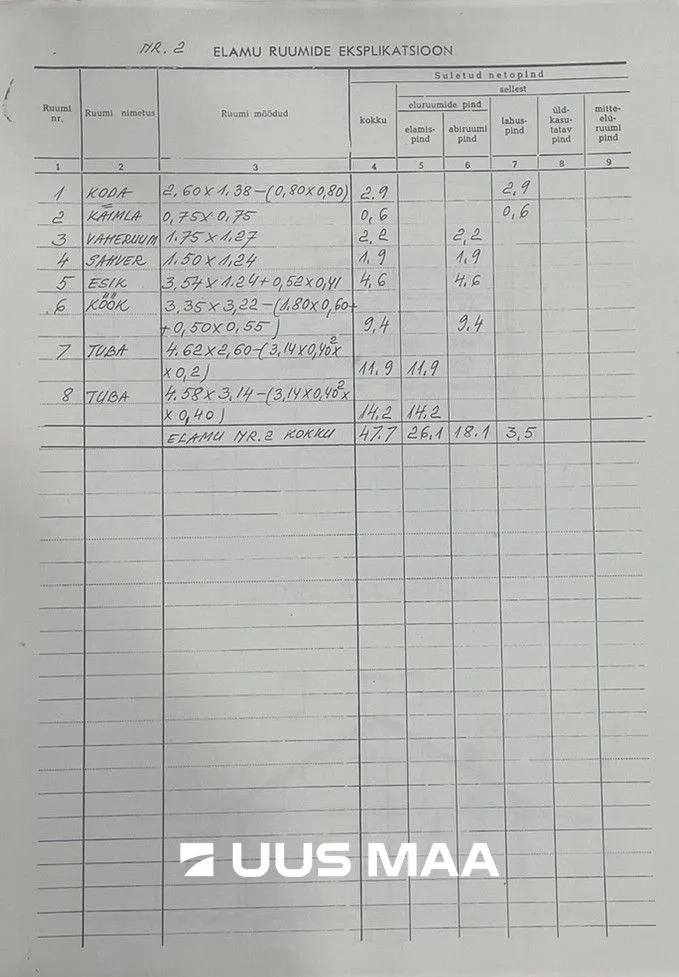 NR. 2 ELAMU RUUMIDE EKSPLIKATSIOON
Suletud netopind
sellest
eluruumide pind
Ruumi nr. Ruumi nimetus Ruumi mõõdud kokku elamis-pind abiruumi pind lahus-pind üld-kasu-tatav pind mitte-elu-ruumi pind
1 2 3 4 5 6 7 8 9
1 KODA 2,60 x 1,38 – (0,80 x 0,80) 2,9 2,9
2 KÄIMLA 0,75 x 0,75 0,6 0,6
3 VAHERUUM 1.75 x 1.27 2,2 2,2
4 SAHVER 1.50 x 1.24 1,9 1,9
5 ESIK 3.54 x 1.24 + 0,52 x 0,41 4,6 4.6
6 KÖÖK 3.35 x 3,22 – (1.80 x 0,60 +
+ 0,50 x 0,55) 9,4 9.4
7 TUBA 4.62 x 2,60 – (3,14 x 0,40² x
x 0,2) 11.9 11,9
8 TUBA 4.58 x 3,14 – (3,14 x 0,40² x
x 0,40) 14.2 14.2
ELAMU NR. 2 KOKKU 47.7 26.1 18.1 3,5
UUS MAA